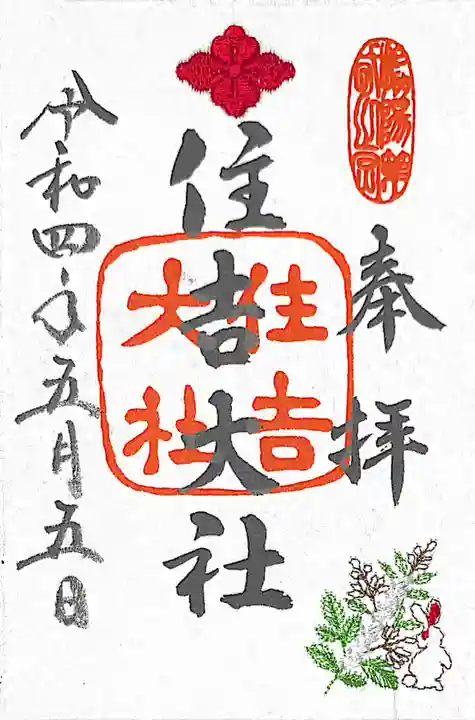 奉拝
住吉大社
住吉
大社
令和四年五月五日